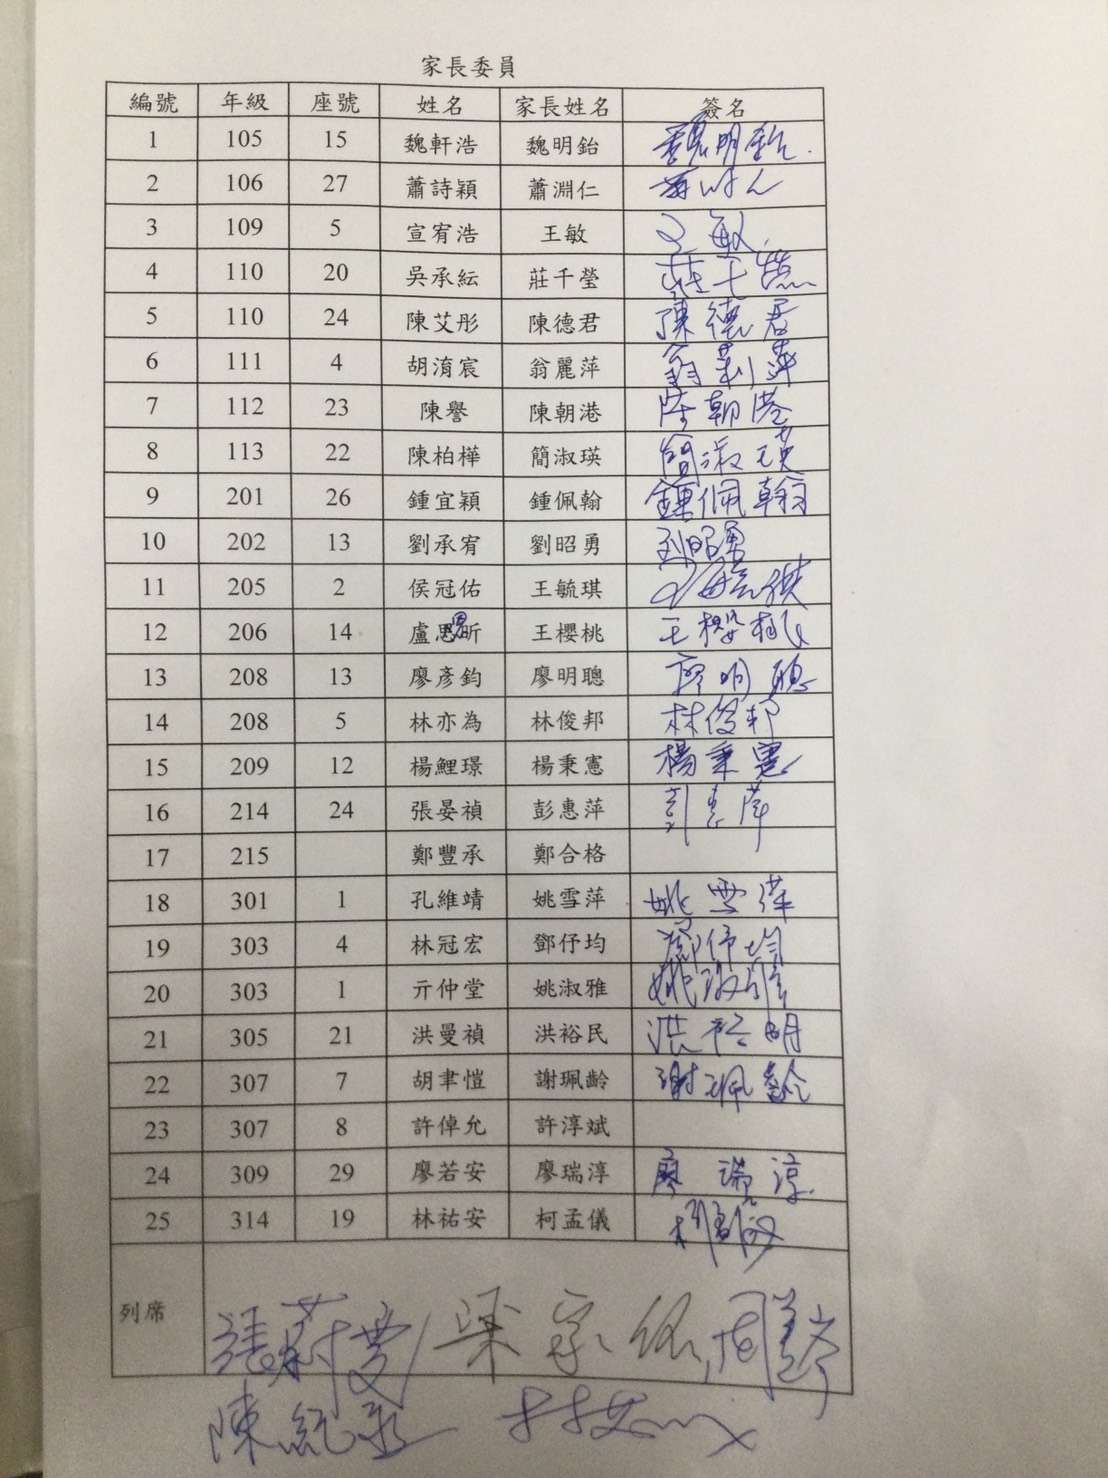 家長委員
編號 年級 座號 姓名 家長姓名 簽名
1 105 15 魏軒浩 魏明鈶 魏明鈶
2 106 27 蕭詩穎 蕭淵仁
3 109 5 宣宥浩 王敏 王敏
4 110 20 吳承紜 莊千瑩 莊千瑩
5 110 24 陳艾彤 陳德君 陳德君
6 111 4 胡淯宸 翁麗萍 翁莉萍
7 112 23 陳譽 陳朝港 陳朝港
8 113 22 陳柏樺 簡淑瑛 簡淑瑛
9 201 26 鍾宜穎 鍾佩翰 鍾佩翰
10 202 13 劉承宥 劉昭勇 劉昭勇
11 205 2 侯冠佑 王毓琪 王毓琪
12 206 14 盧思昕 王櫻桃 王櫻桃
13 208 13 廖彥鈞 廖明聰 廖明聰
14 208 5 林亦為 林俊邦 林俊邦
15 209 12 楊鯉璟 楊秉憲 楊秉憲
16 214 24 張晏禎 彭惠萍 彭惠萍
17 215 鄭豐承 鄭合格
18 301 1 孔維靖 姚雪萍 姚雪萍
19 303 4 林冠宏 鄧伃均 鄧伃均
20 303 1 亓仲堂 姚淑雅 姚淑雅
21 305 21 洪曼禎 洪裕民 洪裕明
22 307 7 胡聿愷 謝珮齡 謝珮齡
23 307 8 許倬允 許淳斌
24 309 29 廖若安 廖瑞淳 廖瑞淳
25 314 19 林祐安 柯孟儀 柯孟儀
列席